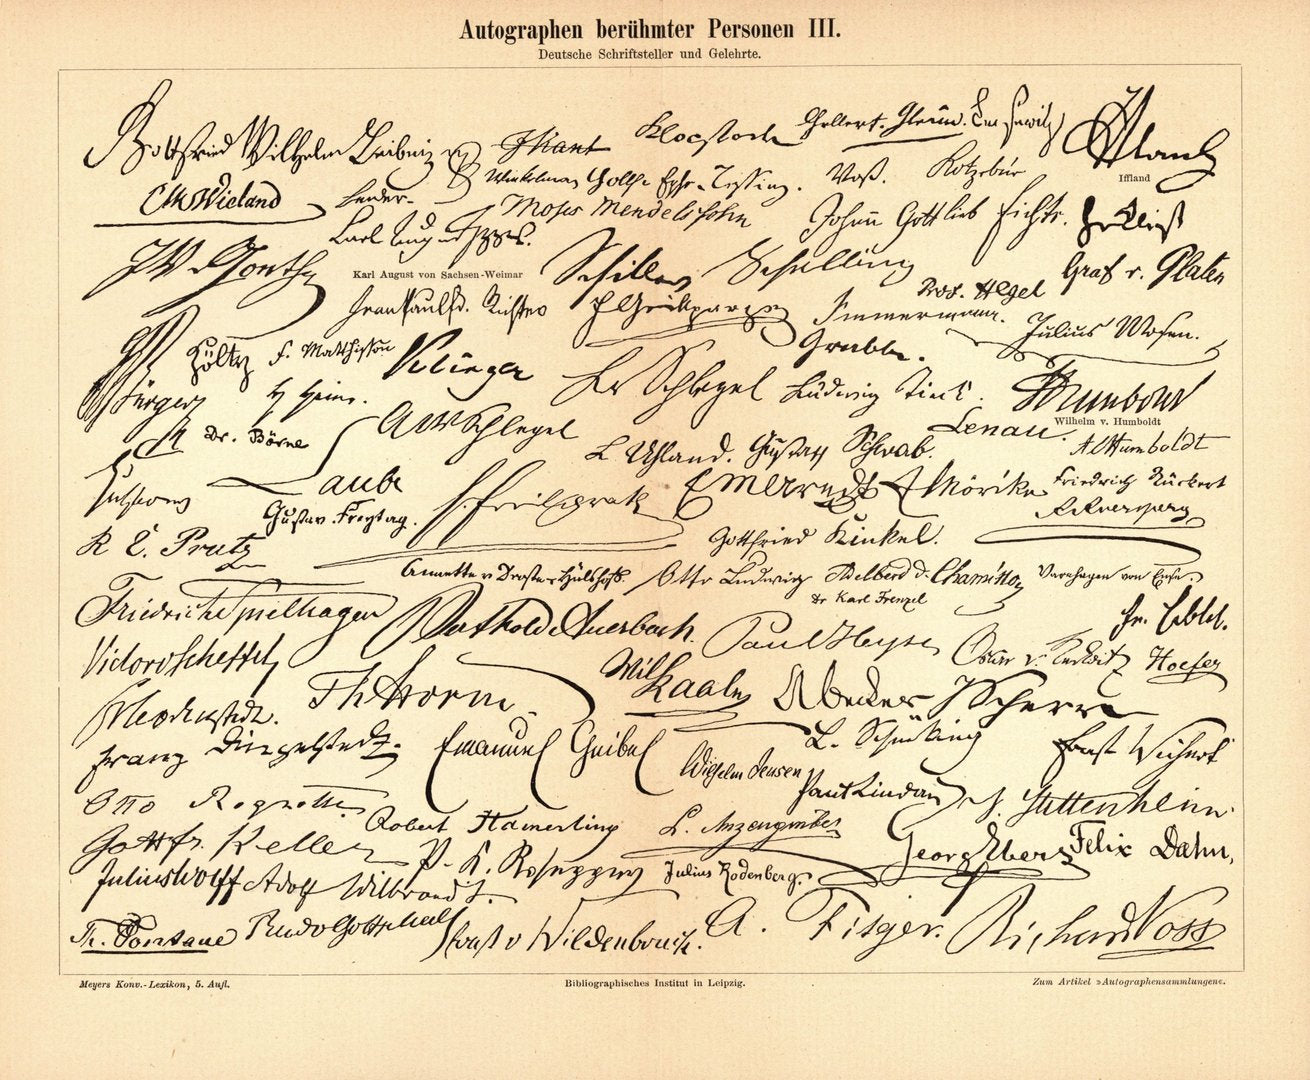 Autographen berühmter Personen III.
Deutsche Schriftsteller und Gelehrte.
Gottfried Wilhelm Leibniz
I Kant
Klopstock
Gellert. Gleim.
Iffland
Winkelmann Gotth. Ephr. Lessing.
Voß.
Kotzebue
CMWieland
Herder
Moses Mendelssohn
Johann Gottlieb Fichte.
HvKleist
Carl August
Karl August von Sachsen-Weimar
JWvGoethe
Schiller
Schelling
Graf v. Platen
Jean Paul Fr. Richter
FGrillparzer
Immermann.
Prof. Hegel
Julius Mosen.
Grabbe.
Bürger
Hölty
F. Matthisson
Klinger
Fr Schlegel
Ludwig Tieck.
Humboldt
Wilhelm v. Humboldt
H Heine.
Dr. Börne
AWSchlegel
L Uhland.
Gustav Schwab.
Lenau.
AlHumboldt
Gutzkow
Laube
Gustav Freytag.
EMArndt
EMörike
Friedrich Rückert
AAuersperg
R E. Prutz
Gottfried Kinkel.
Annette v Droste-Hülshoff.
Otto Ludwig
Adelbert v. Chamisso
Varnhagen von Ense.
Dr Karl Frenzel
Friedrich Spielhagen
Berthold Auerbach.
Paul Heyse
Oskar v. Redwitz
Hoefer
Fr. Hebbel.
Victor v Scheffel
Th Storm
Wilh Raabe
ABecker
JScherr
FBodenstedt.
Franz Dingelstedt.
Emanuel Geibel
L. Schücking
Ernst Wichert
Wilhelm Jensen
Paul Lindau
J. Stettenheim
Otto Roquette
Robert Hamerling
L. Anzengruber
Gottfr. Keller
P. K. Rosegger
Georg Ebers
Felix Dahn.
Julius Wolff
Adolf Wilbrandt.
Julius Rodenberg.
Th. Fontane
Rudolf Gottschall
Ernst v Wildenbruch.
A. Fitger.
Richard Voss
Meyers Konv.-Lexikon, 5. Aufl.
Bibliographisches Institut in Leipzig.
Zum Artikel »Autographensammlungen«.